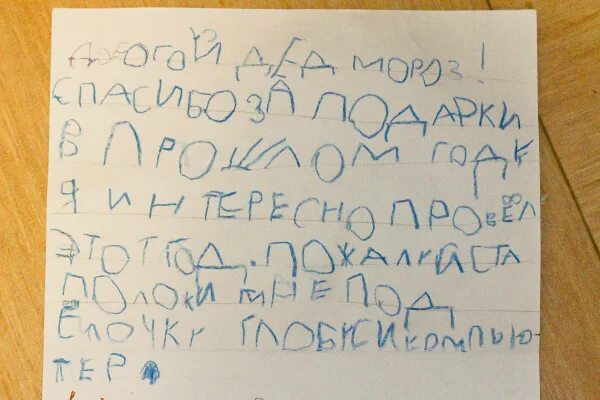 Дорогой Дед Мороз!
Спасибо за подарки
в прошлом году
я интересно провёл
этот год. Пожалуйста
положи мне под
ёлочку глобус и компью-
тер.